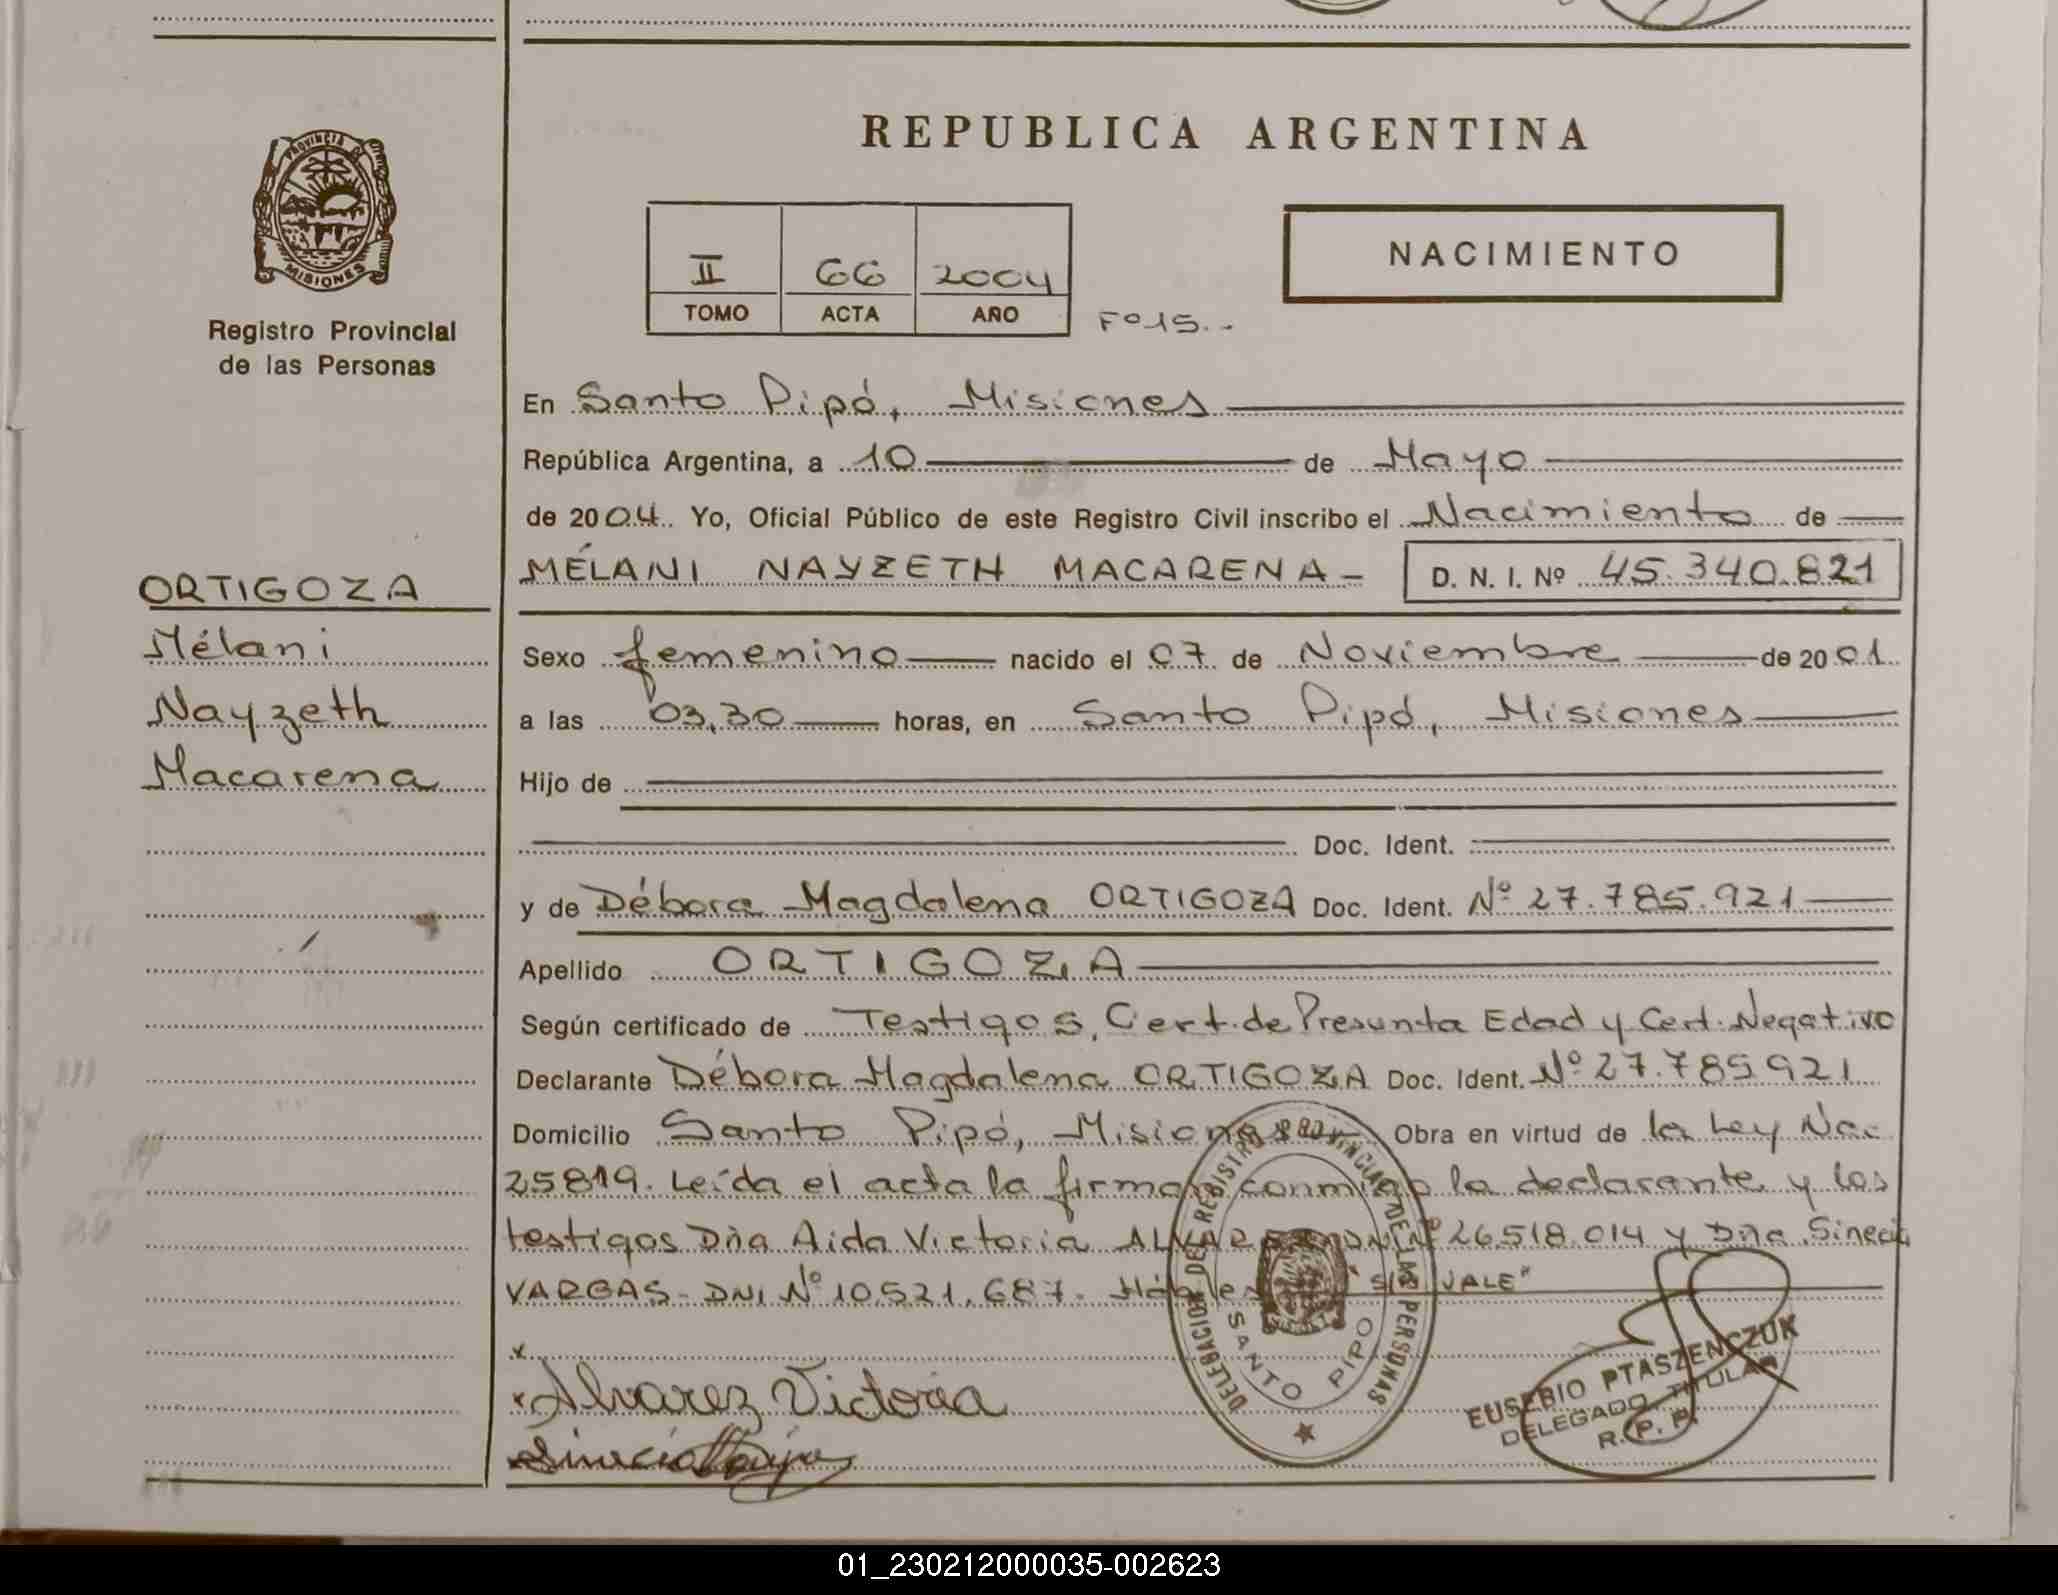 PROVINCIA DE
MISIONES
Registro Provincial
de las Personas
ORTIGOZA
Mélani
Nayzeth
Macarena
REPUBLICA ARGENTINA
II 66 2004
TOMO ACTA AÑO
Fº 15..
NACIMIENTO
En Santo Pipó, Misiones
República Argentina, a 10 de Mayo
de 2004. Yo, Oficial Público de este Registro Civil inscribo el Nacimiento de
MÉLANI NAYZETH MACARENA - D. N. I. Nº 45.340.821
Sexo femenino nacido el 07 de Noviembre de 2001
a las 03,30 horas, en Santo Pipó, Misiones
Hijo de
Doc. Ident.
y de Débora Magdalena ORTIGOZA Doc. Ident. Nº 27.785.921
Apellido ORTIGOZA
Según certificado de Testigos, Cert. de Presunta Edad y Cert. Negativo
Declarante Débora Magdalena ORTIGOZA Doc. Ident. Nº 27.785921
Domicilio Santo Pipó, Misiones Obra en virtud de la Ley Nac
25819. Leída el acta la firman conmigo la declarante y los
testigos Dña Aida Victoria ALVAREZ DNI Nº 26.518.014 y Dña Sinecia
VARGAS - DNI Nº 10.521.687. Hábiles VALE"
x
x Alvarez Victoria
Sinecia
DELEGACION DEL REGISTRO PROVINCIAL DE LAS PERSONAS
SANTO PIPO
EUSEBIO PTASZENCZUK
DELEGADO TITULAR
R. P. P.
01_230212000035-002623